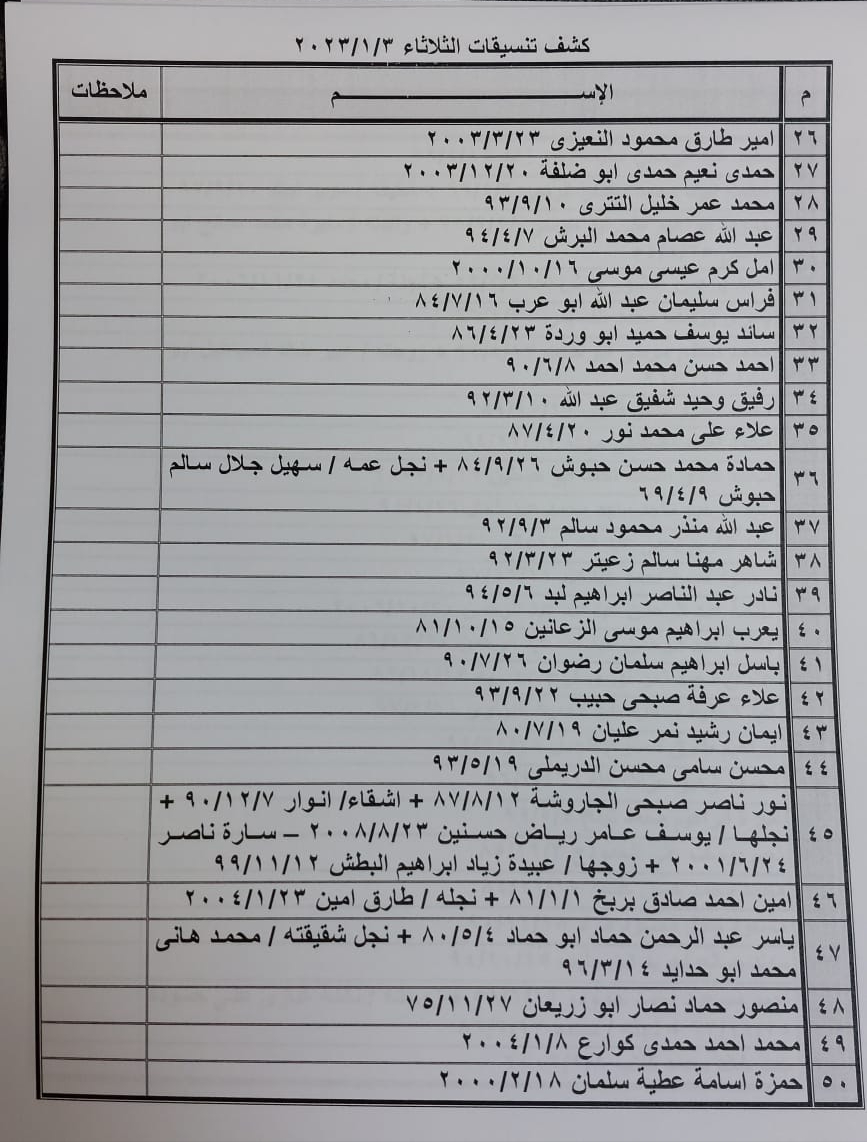 كشف تنسيقات الثلاثاء ٢٠٢٣/١/٣
م الإســـــــــم ملاحظات
٢٦ امير طارق محمود النعيزى ٢٠٠٣/٣/٢٣
٢٧ حمدى نعيم حمدى ابو ضلفة ٢٠٠٣/١٢/٢٠
٢٨ محمد عمر خليل التترى ٩٣/٩/١٠
٢٩ عبد الله عصام محمد البرش ٩٤/٤/٧
٣٠ امل كرم عيسى موسى ٢٠٠٠/١٠/١٦
٣١ فراس سليمان عبد الله ابو عرب ٨٤/٧/١٦
٣٢ ساند يوسف حميد ابو وردة ٨٦/٤/٢٣
٣٣ احمد حسن محمد احمد ٩٠/٦/٨
٣٤ رفيق وحيد شفيق عبد الله ٩٢/٣/١٠
٣٥ علاء على محمد نور ٨٧/٤/٢٠
٣٦ حمادة محمد حسن حبوش ٨٤/٩/٢٦ + نجل عمه / سهيل جلال سالم
حبوش ٦٩/٤/٩
٣٧ عبد الله منذر محمود سالم ٩٢/٩/٣
٣٨ شاهر مهنا سالم زعيتر ٩٢/٣/٢٣
٣٩ نادر عبد الناصر ابراهيم لبد ٩٤/٥/٦
٤٠ يعرب ابراهيم موسى الزعانين ٨١/١٠/١٥
٤١ باسل ابراهيم سلمان رضوان ٩٠/٧/٢٦
٤٢ علاء عرفة صبحى حبيب ٩٣/٩/٢٢
٤٣ ايمان رشيد نمر عليان ٨٠/٧/١٩
٤٤ محسن سامى محسن الدريملى ٩٣/٥/١٩
٤٥ نور ناصر صبحى الجاروشة ٨٧/٨/١٢ + اشقاء/ انوار ٩٠/١٢/٧ +
نجلها / يوسف عامر رياض حسنين ٢٠٠٨/٨/٢٣ – سارة ناصر
٢٠٠١/٦/٢٤ + زوجها / عبيدة زياد ابراهيم البطش ٩٩/١١/١٢
٤٦ امين احمد صادق بربخ ٨١/١/١ + نجله / طارق امين ٢٠٠٤/١/٢٣
٤٧ ياسر عبد الرحمن حماد ابو حماد ٨٠/٥/٤ + نجل شقيقته / محمد هانى
محمد ابو حدايد ٩٦/٣/١٤
٤٨ منصور حماد نصار ابو زريعان ٧٥/١١/٢٧
٤٩ محمد احمد حمدى كوارع ٢٠٠٤/١/٨
٥٠ حمزة اسامة عطية سلمان ٢٠٠٠/٢/١٨